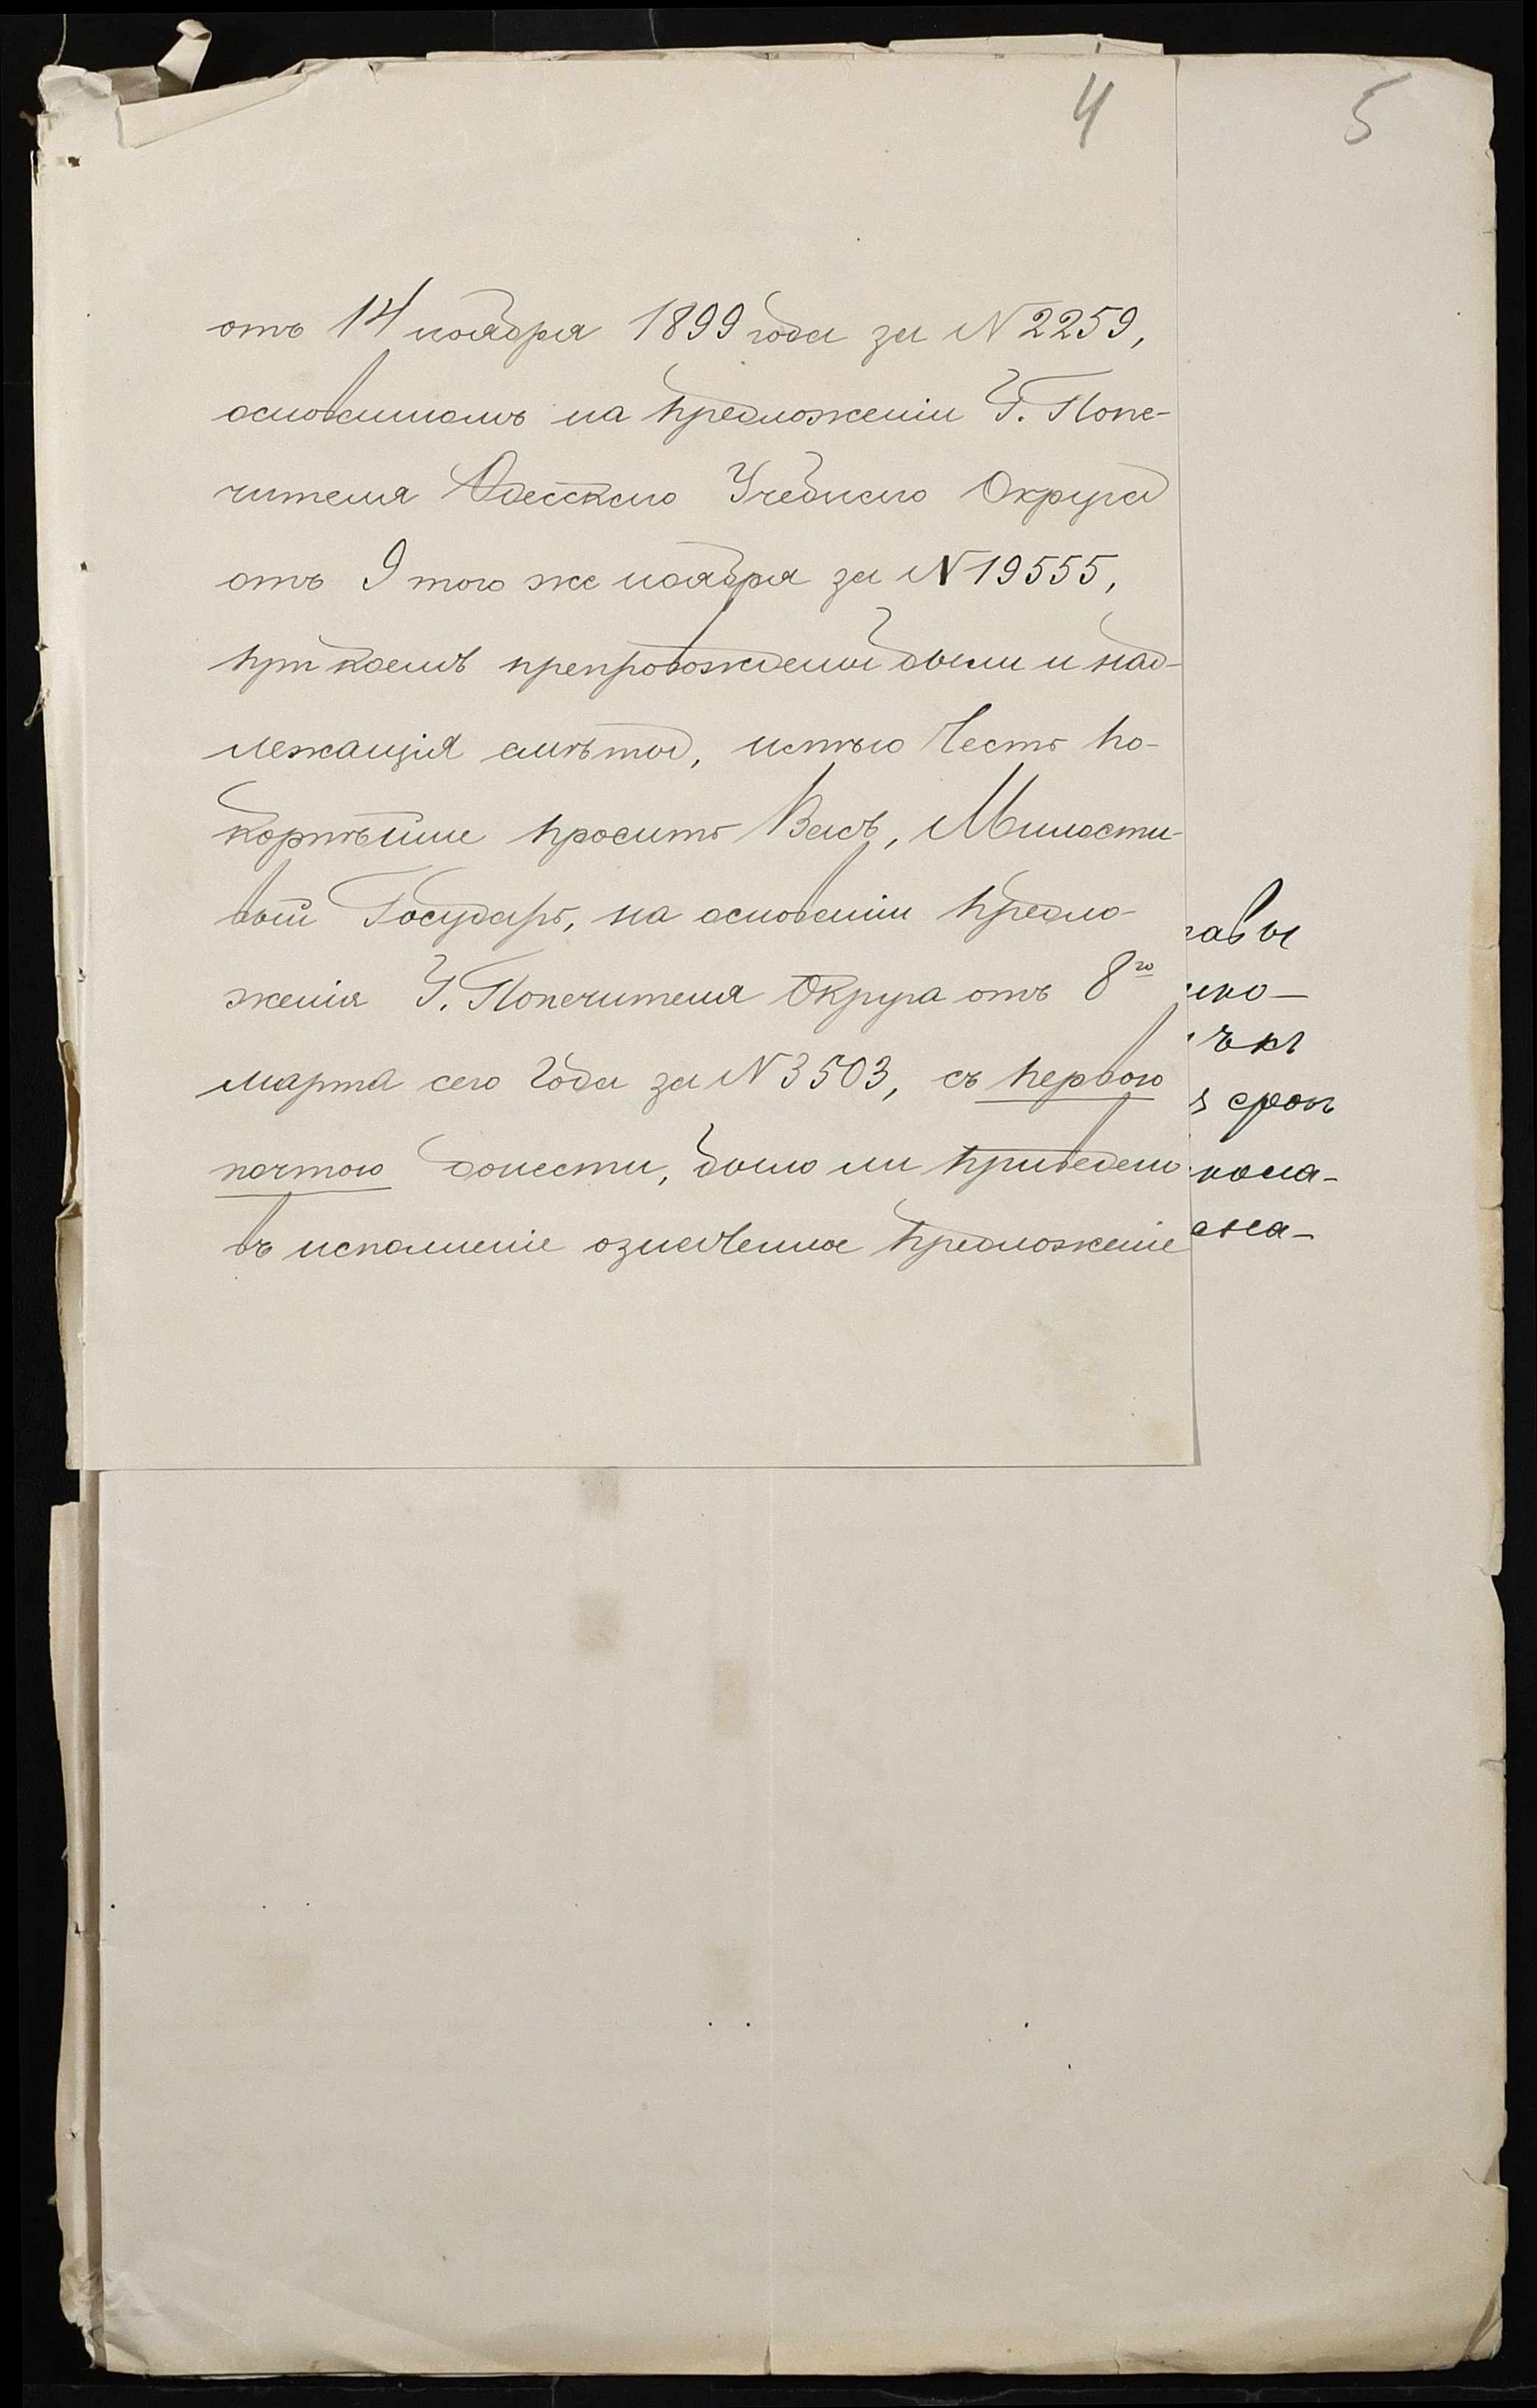 4
5
отъ 14 ноября 1899 года за N 2259,
основанномъ на предложеніи Г. Попе-
чителя Одесскаго Учебнаго Округа
отъ 9 того же ноября за N 19555,
при коемъ препровождены были и над-
лежащія смѣты, имѣю честь по-
корнѣйше просить Васъ, Милости-
вый Государь, на основаніи предло-
женія Г. Попечителя Округа отъ 8го
марта сего года за N 3503, съ первою
почтою донести, было ли приведено
въ исполненіе означенное предложеніе
авы
ько-
ъкъ
срок
кома-
ана-